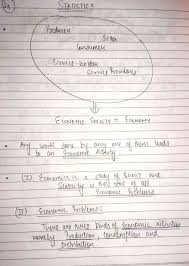 STATISTICS
Producer
Seller
Consumers
Service-holder
Service Providers
Economic Society = Economy
Any work done by any one of them leads
to an Economic Activity
(I) Economics is a study of Choice and
Scarcity is the root of all
Economic Problems
(II) Economic Problems:
There are three kinds of economic activities
namely Production, Consumption and
Distribution.